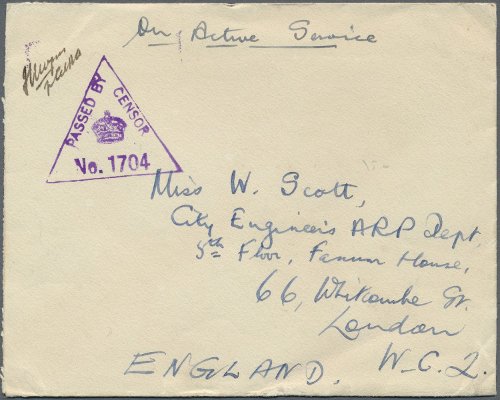 On Active Service
PASSED BY CENSOR
No. 1704
Miss W. Scott,
City Engineers ARP Dept,
5th Floor, Fanum House,
66, Whitcombe St.
London
W.C.2.
ENGLAND.